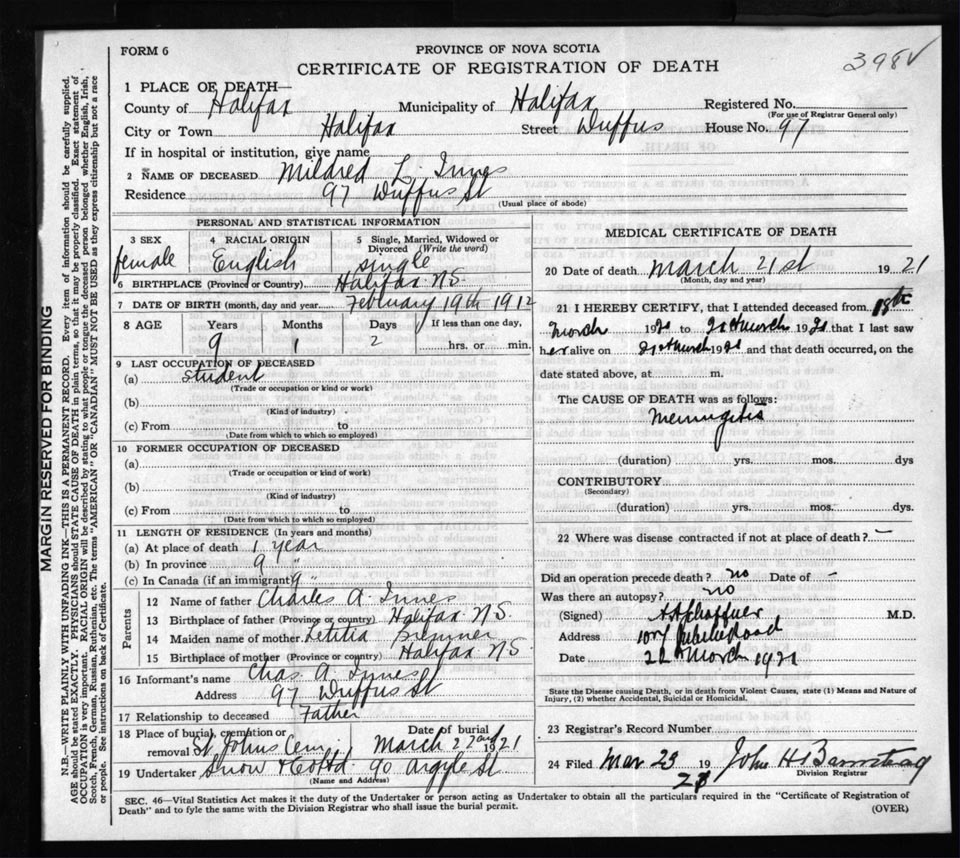 FORM 6
PROVINCE OF NOVA SCOTIA
398
CERTIFICATE OF REGISTRATION OF DEATH
1 PLACE OF DEATH—
County of Halifax Municipality of Halifax Registered No.
(For use of Registrar General only)
City or Town Halifax Street Duffus House No. 97
If in hospital or institution, give name
2 NAME OF DECEASED Mildred L. Innes
Residence 97 Duffus St
(Usual place of abode)
PERSONAL AND STATISTICAL INFORMATION
3 SEX 4 RACIAL ORIGIN 5 Single, Married, Widowed or Divorced (Write the word)
female English single
6 BIRTHPLACE (Province or Country) Halifax N S
7 DATE OF BIRTH (month, day and year) February 19th 1912
8 AGE Years Months Days If less than one day,
9 1 2 hrs. or min.
9 LAST OCCUPATION OF DECEASED
(a) student
(Trade or occupation or kind or work)
(b)
(Kind of industry)
(c) From to
(Date from which to which so employed)
10 FORMER OCCUPATION OF DECEASED
(a)
(Trade or occupation or kind of work)
(b)
(Kind of industry)
(c) From to
(Date from which to which so employed)
11 LENGTH OF RESIDENCE (In years and months)
(a) At place of death 1 year
(b) In province 9 "
(c) In Canada (if an immigrant) 9 "
Parents
12 Name of father Charles A. Innes
13 Birthplace of father (Province or country) Halifax N S
14 Maiden name of mother Letitia
15 Birthplace of mother (Province or country) Halifax N S
16 Informant's name Chas A Innes
Address 97 Duffus St
17 Relationship to deceased Father
18 Place of burial, cremation or removal St Johns Cem Date of burial March 22nd 1921
19 Undertaker Snow & Co Ltd 90 Argyle St
(Name and Address)
MEDICAL CERTIFICATE OF DEATH
20 Date of death March 21st 1921
(Month, day and year)
21 I HEREBY CERTIFY, that I attended deceased from 18th
March 192 to March 192 that I last saw
her alive on 21st March 192 and that death occurred, on the
date stated above, at m.
The CAUSE OF DEATH was as follows:
Meningitis
(duration) yrs. mos. dys
CONTRIBUTORY
(Secondary)
(duration) yrs. mos. dys.
22 Where was disease contracted if not at place of death? —
Did an operation precede death? no Date of —
Was there an autopsy? no
(Signed) M.D.
Address Road
Date March 1921
State the Disease causing Death, or in death from Violent Causes, state (1) Means and Nature of
Injury, (2) whether Accidental, Suicidal or Homicidal.
23 Registrar's Record Number
24 Filed Mar 23 19 John H Barnstead
Division Registrar
SEC. 46—Vital Statistics Act makes it the duty of the Undertaker or person acting as Undertaker to obtain all the particulars required in the "Certificate of Registration of
Death" and to fyle the same with the Division Registrar who shall issue the burial permit.
(OVER)
MARGIN RESERVED FOR BINDING
N.B.—WRITE PLAINLY WITH UNFADING INK—THIS IS A PERMANENT RECORD. Every item of information should be carefully supplied.
AGE should be stated EXACTLY. PHYSICIANS should STATE CAUSE OF DEATH in plain terms, so that it may be properly classified. Exact statement of
OCCUPATION is very important. RACIAL ORIGIN will be described by stating to what people or tongue the deceased person belonged whether English, Irish,
Scotch, French, German, Russian, Ruthenian, etc. The terms "AMERICAN" OR "CANADIAN" MUST NOT BE USED as they express citizenship but not a race
or people. See instructions on back of Certificate.